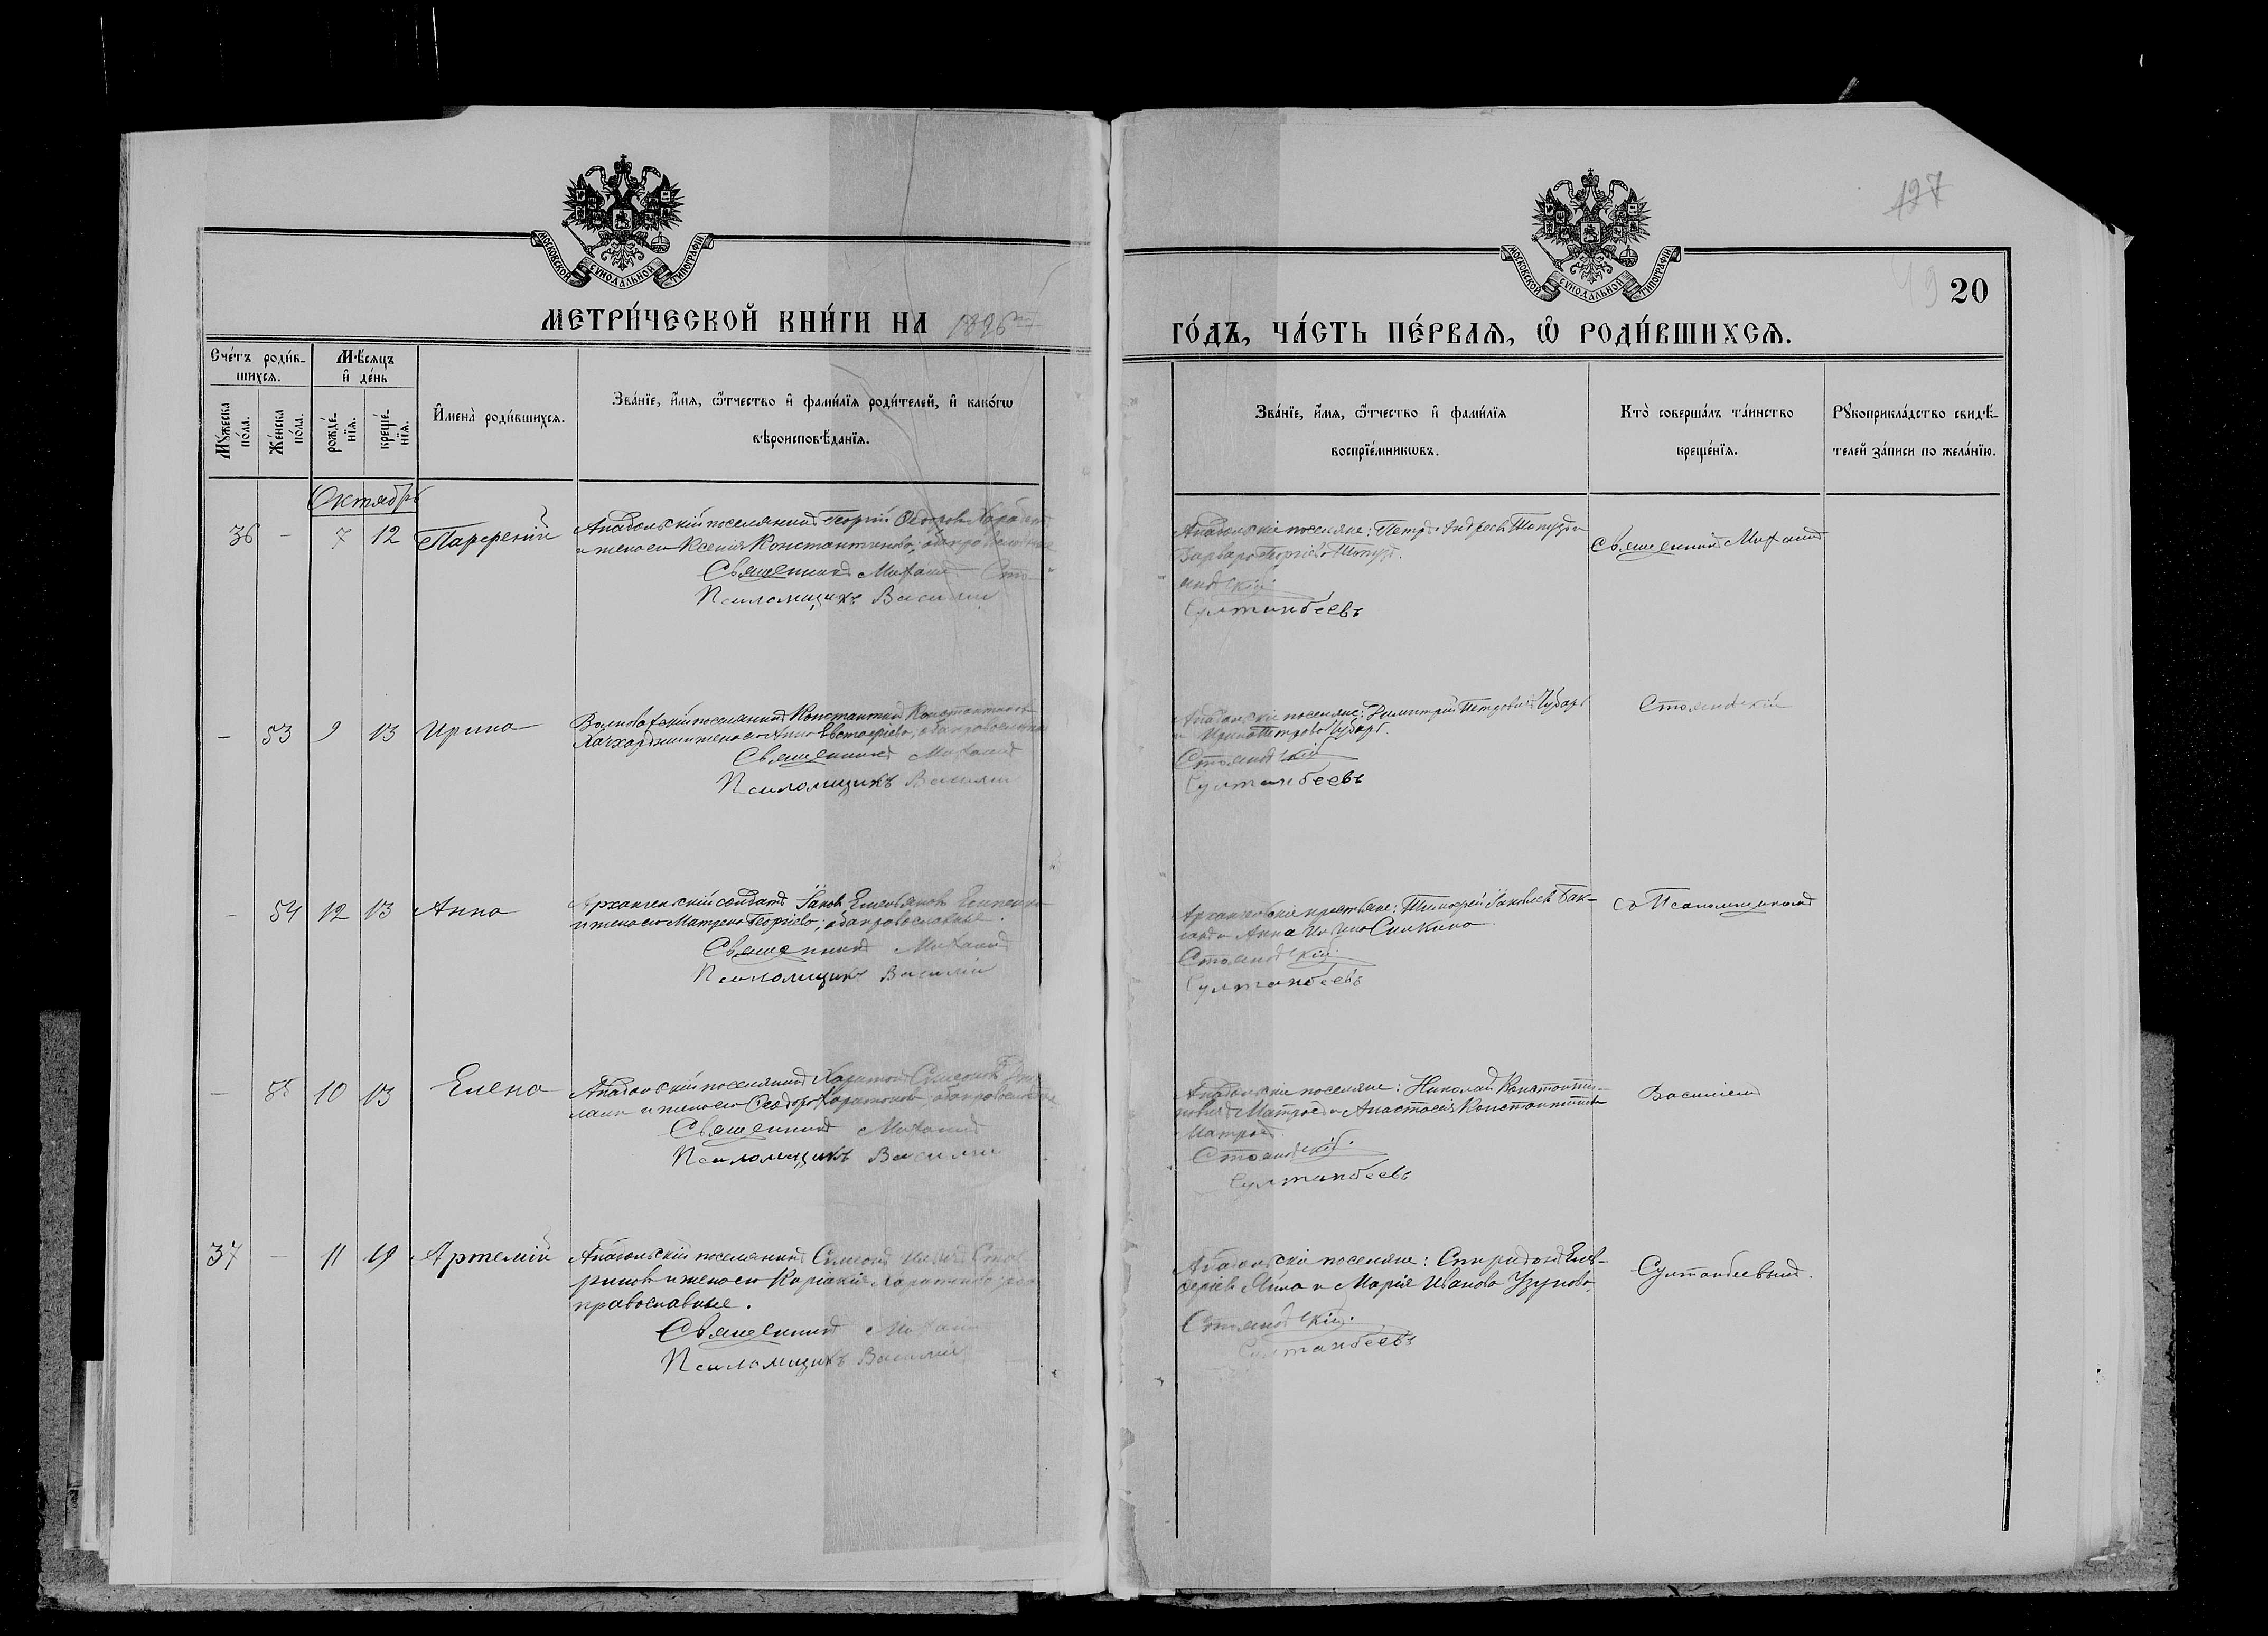 МОСКОВСКОЙ СѴНОДАЛЬНОЙ ТИПОГРАФІИ
МЕТРИ́ЧЕСКОЙ КНИ́ГИ НА 1896
Сче́тъ роди́в-
шихсѧ.
Мѣ́сѧцъ
и҆ де́нь
Мꙋ́жеска
по́ла.
Же́нска
по́ла.
рожде́-
нїѧ.
креще́-
нїѧ.
И҆мена̀ роди́вшихсѧ.
Зва́нїе, и҆́мѧ, ѻ҆́тчество и҆ фами́лїѧ роди́телей, и҆ како́гѡ
вѣроисповѣ́данїѧ.
Октябрь
36 - 7 12 Парѳеній Анадольскій поселянинъ Георгій Ѳедоровъ
и жена его Ксенія Константинова; оба православные
Священникъ Михаилъ Сто-
Псаломщикъ Василій
- 53 9 13 Ирина поселянинъ Константинъ Константиновъ
и жена его Анна Евстафіева; оба православные
Священникъ Михаилъ
Псаломщикъ Василій
- 54 12 13 Анна Архангельскій солдатъ Іаковъ Емельяновъ
и жена его Матрена Георгіева; оба православные.
Священникъ Михаилъ
Псаломщикъ Василій
- 55 10 13 Елена Анадольскій поселянинъ Харитонъ Симеоновъ
и жена его Ѳеодора Харитонова; оба православные
Священникъ Михаилъ
Псаломщикъ Василій
37 - 11 19 Артемій Анадольскій поселянинъ Симеонъ
и жена его Киріакія Харитонова; оба
православные.
Священникъ Михаилъ
Псаломщикъ Василій
127
МОСКОВСКОЙ СѴНОДАЛЬНОЙ ТИПОГРАФІИ
49 20
ГО́ДЪ, ЧА́СТЬ ПЕ́РВАѦ, Ѡ҆ РОДИ́ВШИХСѦ.
Зва́нїе, и҆́мѧ, ѻ҆́тчество и҆ фами́лїѧ
воспрїе́мникѡвъ.
Кто̀ соверша́лъ та́инство
креще́нїѧ.
Рꙋкоприкла́дство свидѣ́-
телей за́писи по жела́нїю.
Анадольскіе поселяне: Петръ Андреевъ
Варвара Георгіева
яновскій
Султанбеевъ
Священникъ Михаилъ
Анадольскіе поселяне: Димитрій Петровичъ Чубаръ
и Ирина Петрова Чубаръ.
Стояновскій
Султанбеевъ
Стояновскій
Архангельскіе крестьяне: Тимофей Іаковлевъ Бак-
и Анна
Стояновскій
Султанбеевъ
съ Псаломщикомъ
Анадольскіе поселяне: Николай Константи-
новичъ и Анастасія Константинова
Стояновскій.
Султанбеевъ
Василіемъ
Анадольскіе поселяне: Спиридонъ Елев-
феріевъ и Марія Иванова Узунова.
Стояновскій.
Султанбеевъ
Султанбеевымъ.